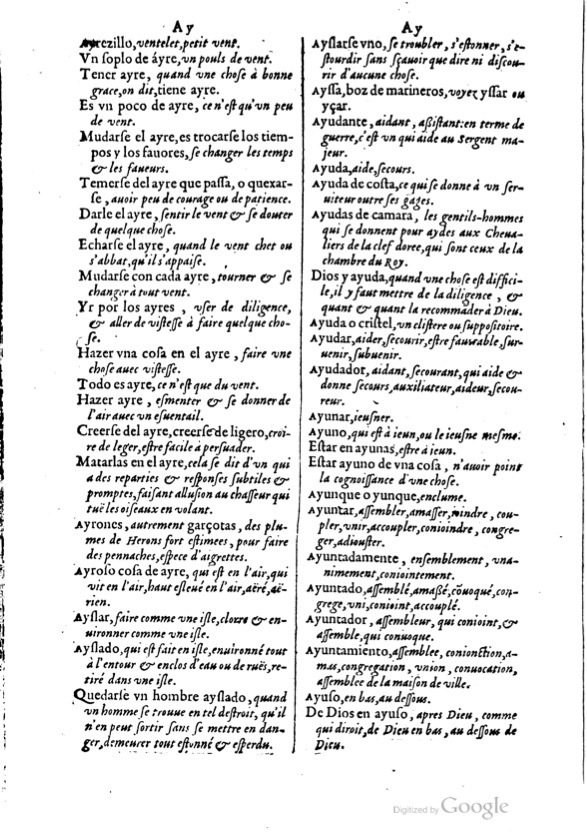 Ay
Ayrezillo, ventelet, petit vent.
Vn soplo de áyre, vn pouls de vent.
Tener ayre, quand vne chose à bonne
grace, on dit, tiene ayre.
Es vn poco de ayre, ce n'eſt qu'vn peu
de vent.
Mudarſe el ayre, es trocarſe los tiem-
pos y los fauores, ſe changer les temps
& les faueurs.
Temerſe del ayre que paſſa, o quexar-
ſe, auoir peu de courage ou de patience.
Darle el ayre, ſentir le vent & ſe douter
de quelque choſe.
Echarſe el ayre, quand le vent chet ou
s'abbat, qu'il s'appaiſe.
Mudarſe con cada ayre, tourner & ſe
changer à tout vent.
Yr por los ayres, vſer de diligence,
& aller de viſteſſe à faire quelque cho-
ſe.
Hazer vna coſa en el ayre, faire vne
choſe auec viſteſſe.
Todo es ayre, ce n'eſt que du vent.
Hazer ayre, eſmenter & ſe donner de
l'air auec vn eſuentail.
Creerſe del ayre, creerſe de ligero, croi-
re de leger, eſtre facile à perſuader.
Matarlas en el ayre, cela ſe dit d'vn qui
a des reparties & reſponſes ſubtiles &
promptes, faiſant alluſion au chaſſeur qui
tuë les oiſeaux en volant.
Ayrones, autrement garçotas, des plu-
mes de Herons fort eſtimees, pour faire
des pennaches, eſpece d'aigrettes.
Ayroſo coſa de ayre, qui eſt en l'air, qui
vit en l'air, haut eſleué en l'air, aëré, aë-
rien.
Ayſlar, faire comme vne iſle, clorre & en-
uironner comme vne iſle.
Ayſlado, qui eſt fait en iſle, enuironné tout
à l'entour & enclos d'eau ou de ruës, re-
tiré dans vne iſle.
Quedarſe vn hombre ayſlado, quand
vn homme ſe trouue en tel deſtroit, qu'il
n'en peut ſortir ſans ſe mettre en dan-
ger, demeurer tout eſtonné & eſperdu.
Ay
Ayſlarſe vno, ſe troubler, s'eſtonner, s'e-
ſtourdir ſans ſçauoir que dire ni diſcou-
rir d'aucune choſe.
Ayſſa, boz de marineros, voyez yſſar ou
yçar.
Ayudante, aidant, aßiſtant: en terme de
guerre, c'eſt vn qui aide au Sergent ma-
jeur.
Ayuda, aide, ſecours.
Ayuda de coſta, ce qui ſe donne à vn ſer-
uiteur outre ſes gages.
Ayudas de camara, les gentils-hommes
qui ſe donnent pour aydes aux Cheua-
liers de la clef doree, qui ſont ceux de la
chambre du Roy.
Dios y ayuda, quand vne choſe eſt diffici-
le, il y faut mettre de la diligence, &
quant & quant la recommader à Dieu.
Ayuda o criſtel, vn cliſtere ou ſuppoſitoire.
Ayudar, aider, ſecourir, eſtre fauorable, ſur-
uenir, ſubuenir.
Ayudador, aidant, ſecourant, qui aide &
donne ſecours, auxiliateur, aideur, ſecou-
reur.
Ayunar, ieuſner.
Ayuno, qui eſt à ieun, ou le ieuſne meſme.
Eſtar en ayunas, eſtre à ieun.
Eſtar ayuno de vna coſa, n'auoir point
la cognoiſſance d'vne choſe.
Ayunque o yunque, enclume.
Ayuntar, aſſembler, amaſſer, ioindre, cou-
pler, vnir, accoupler, conioindre, congre-
ger, adiouſter.
Ayuntadamente, enſemblement, vna-
nimement, coniointement.
Ayuntado, aſſemblé, amaßé, cõuoqué, con-
grege, vni, conioint, accouplé.
Ayuntador, aſſembleur, qui conioint, &
aſſemble, qui conuoque.
Ayuntamiento, aſſemblee, conionction, a-
mas, congregation, vnion, conuocation,
aſſemblee de la maiſon de ville.
Ayuſo, en bas, au deſſous.
De Dios en ayuſo, apres Dieu, comme
qui diroit, de Dieu en bas, au deſſous de
Dieu.
Digitized by Google